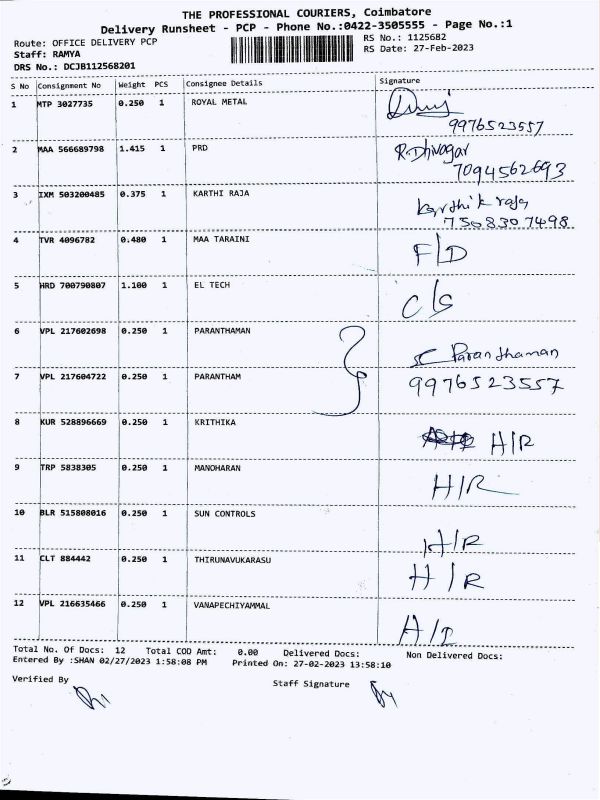 THE PROFESSIONAL COURIERS, Coimbatore
Delivery Runsheet - PCP - Phone No.:0422-3505555 - Page No.:1
Route: OFFICE DELIVERY PCP
RS No.: 1125682
Staff: RAMYA
RS Date: 27-Feb-2023
DRS No.: DCJB112568201
S No Consignment No Weight PCS Consignee Details Signature
1 MTP 3027735 0.250 1 ROYAL METAL
9976523557
2 MAA 566689798 1.415 1 PRD R.Dhivagar
7094562693
3 IXM 503200485 0.375 1 KARTHI RAJA Karthik raja
7508307498
4 TVR 4096782 0.480 1 MAA TARAINI F/D
5 HRD 700790807 1.100 1 EL TECH C/S
6 VPL 217602698 0.250 1 PARANTHAMAN Paranthaman
7 VPL 217604722 0.250 1 PARANTHAM 9976523557
8 KUR 528896669 0.250 1 KRITHIKA H/R
9 TRP 5838305 0.250 1 MANOHARAN H/R
10 BLR 515808016 0.250 1 SUN CONTROLS H/R
11 CLT 884442 0.250 1 THIRUNAVUKARASU H/R
12 VPL 216635466 0.250 1 VANAPECHIYAMMAL
Total No. Of Docs: 12 Total COD Amt: 0.00 Delivered Docs: Non Delivered Docs:
Entered By :SHAN 02/27/2023 1:58:08 PM Printed On: 27-02-2023 13:58:10
Verified By
Staff Signature